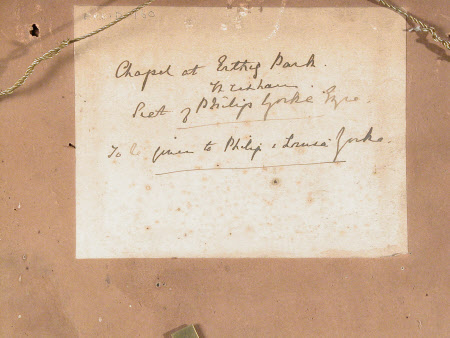 Chapel at Erthig Park.
Wrexham.
Seat of Philip Yorke Esqre.
To be given to Philip & Louisa Yorke.